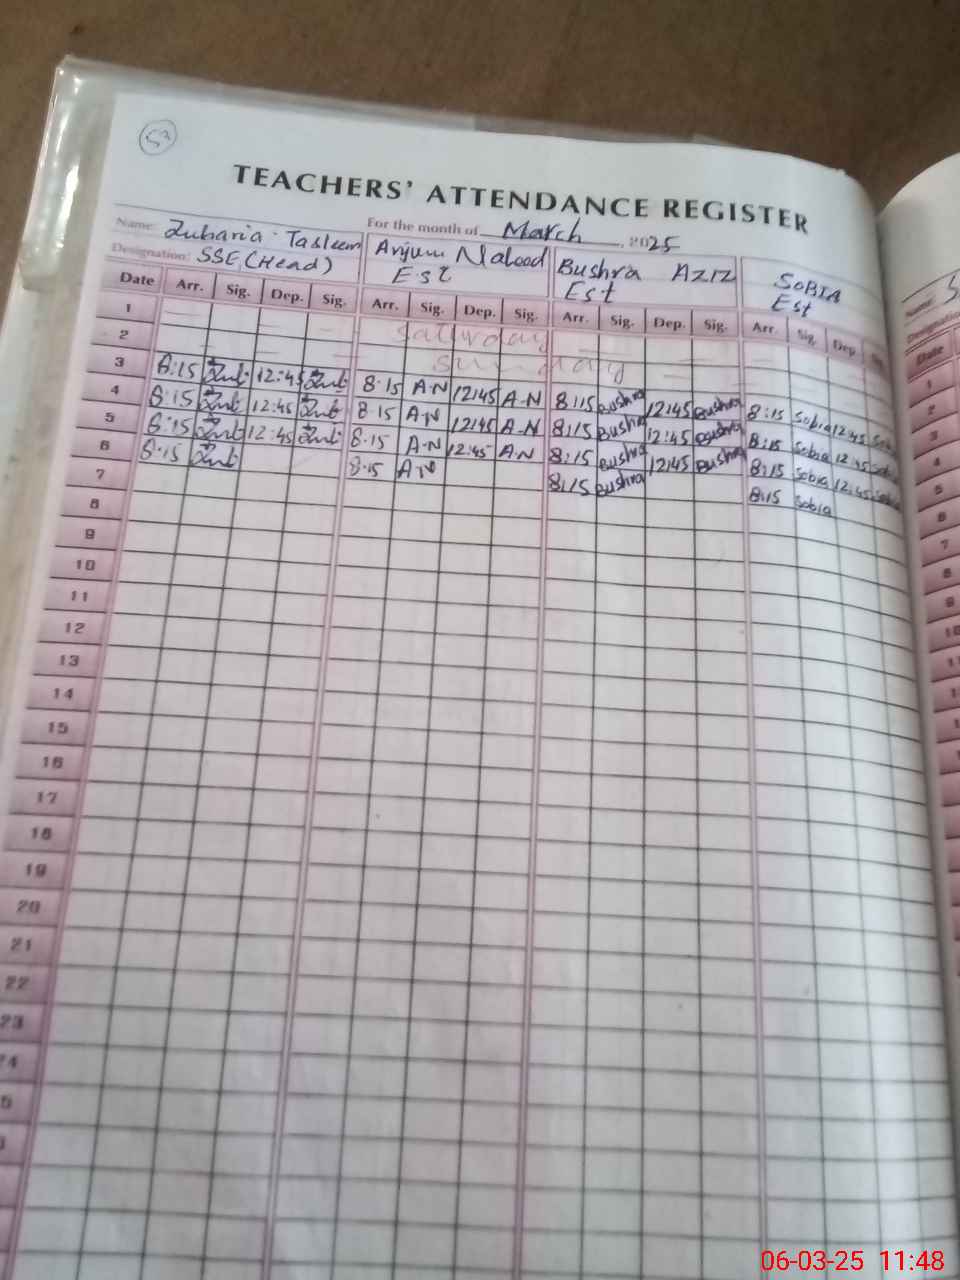 53
TEACHERS' ATTENDANCE REGISTER
Name: Zuharia Tasleem For the month of March, 2025
Designation: SSE (Head) Anjum Naheed Est Bushra Aziz Est SOBIA Est
Date Arr. Sig. Dep. Sig. Arr. Sig. Dep. Sig. Arr. Sig. Dep. Sig. Arr. Sig. Dep.
1 Saturday
2 Sunday
3 8:15 Zub 12:45 Zub 8:15 A-N 12:45 A-N 8:15 Bushra 12:45 Bushra 8:15 Sobia 12:45 Sobia
4 8:15 Zub 12:45 Zub 8:15 A-N 12:45 A-N 8:15 Bushra 12:45 Bushra 8:15 Sobia 12:45 Sobia
5 8:15 Zub 12:45 Zub 8:15 A-N 12:45 A-N 8:15 Bushra 12:45 Bushra 8:15 Sobia 12:45 Sobia
6 8:15 Zub 8:15 A-N 8:15 Bushra 8:15 Sobia
7
8
9
10
11
12
13
14
15
16
17
18
19
20
21
22
23
Name: S
Designation
Date
1
2
3
4
5
6
7
8
9
10
06-03-25 11:48